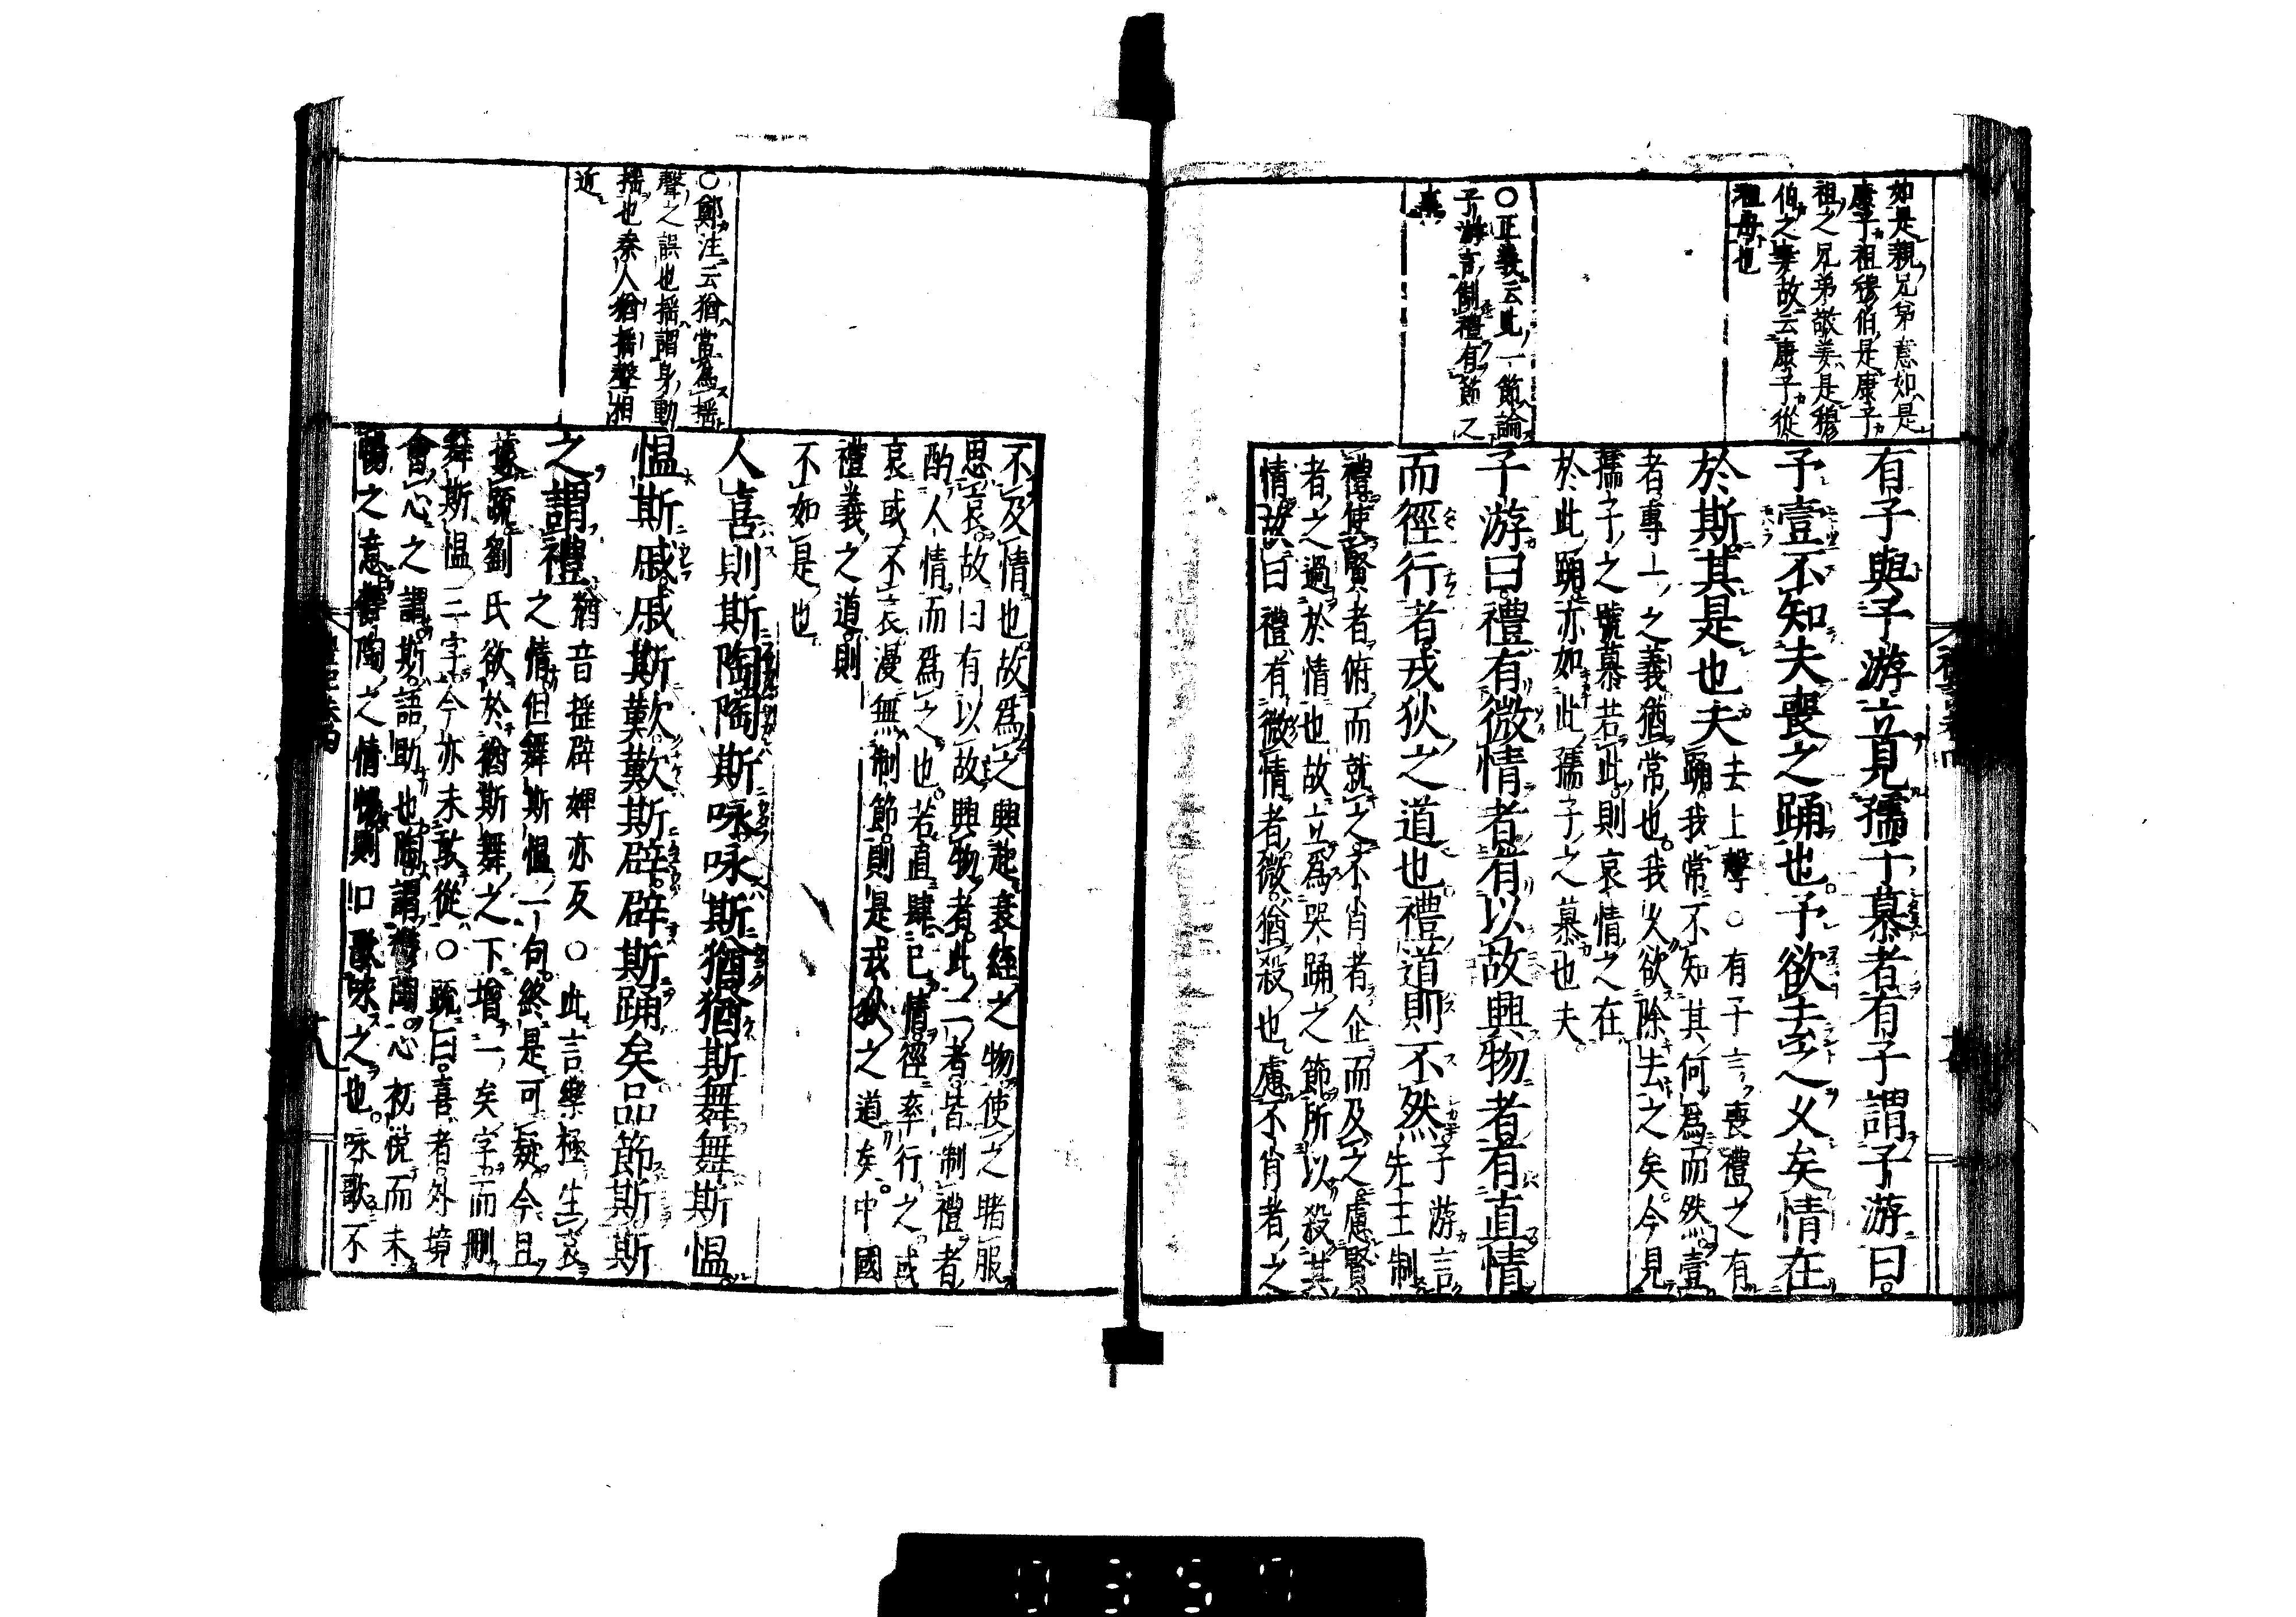 如是親兄弟意如是
康子祖穆伯是康子
祖之兄弟敬姜是穆
伯之妻故云康子從
祖母也
○正義云此一節論
子游言制禮有節之
事
有子與子游立見孺子慕者有子謂子游曰
予壹不知夫喪之踊也予欲去之久矣情在
於斯其是也夫
夫上聲○有子言喪禮之有
踊我常不知其何爲而然壹
者專一之義猶常也我久欲除去之矣今見
孺子之號慕若此則哀情之在
於此踊亦如此孺子之慕也夫
子游曰禮有微情者有以故興物者有直情
而徑行者戎狄之道也禮道則不然
子游言
先王制
禮使賢者俯而就之不肖者企而及之慮賢
者之過於情也故立爲哭踊之節所以殺其
情故曰禮有微情者微猶殺也慮不肖者之
不及情也故爲之興起衰絰之物使之睹服
思哀故曰有以故興物者此二者皆制禮者
酌人情而爲之也若直肆己情徑率行之或
哀或不哀漫無制節則是戎狄之道矣中國
禮義之道則
不如是也
○鄭注云猶當爲搖
聲之誤也搖謂身動
搖也秦人猶搖聲相
近
人喜則斯陶陶斯咏咏斯猶猶斯舞舞斯慍
慍斯戚戚斯歎歎斯辟辟斯踊矣品節斯斯
之謂禮
猶音搖辟婢亦反○此言樂極生哀
之情但舞斯慍一句終是可疑今且
據疏劉氏欲於猶斯舞之下增一矣字而刪
舞斯慍三字今亦未敢從○疏曰喜者外境
會心之謂斯語助也陶謂鬱陶心初悅而未
暢之意鬱陶之情暢則口歌咏之也咏歌不